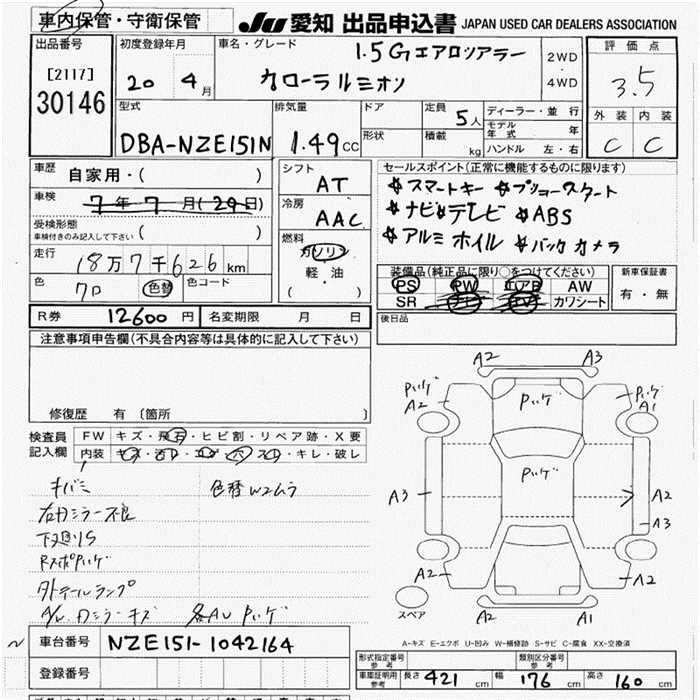 車内保管・守衛保管
JU 愛知 出品申込書 JAPAN USED CAR DEALERS ASSOCIATION
出品番号
[2117]
30146
初度登録年月
20 年 4 月
車名・グレード
1.5Gエアロツアラー
カローラルミオン
2WD
・
4WD
評価点
3.5
外装 内装
C C
型式
DBA-NZE151N
排気量
1.49 CC
ドア
形状
定員
5 人
積載
kg
ディーラー・並行
モデル年式 年
ハンドル 左・右
車歴
自家用・( )
車検
7年 7月(29日)
受検形態
車検付きのみ記入して下さい ( )
走行
18万7千626 km
色
クロ
色替
色コード
シフト
AT
冷房
AAC
燃料
ガソリン
軽・油
( )
セールスポイント(正常に機能するものに限ります)
☆スマートキー ☆プッシュスタート
☆ナビ☆テレビ ☆ABS
☆アルミホイル ☆バックカメラ
装備品(純正品に限り○をつけてください)
PS PW エアB AW
SR ナビ TV カワシート
新車保証書
有・無
R券 12600 円
名変期限 月 日
後日品
注意事項申告欄(不具合内容等は具体的に記入して下さい)
修復歴 有 〔箇所 〕
検査員
記入欄
FW キズ・飛石・ヒビ割・リペア跡・X要
内装 キズ・汚レ・コゲ・穴・スレ・キレ・破レ
キバミ 色替Wコムラ
右ドミラー不良
下廻りS
RスポPハゲ
外テールランプ
A/W、ドミラーキズ 各AU Pハゲ
A2 A3
Pハゲ A2
Pハゲ
Pハゲ A1
Pハゲ
A3
A2
A3
A2
A2
スペア
A2 A1
A-キズ E-エクボ U-凹み W-補修跡 S-サビ C-腐食 XX-交換済
車台番号 NZE151-1042164
登録番号
形式指定番号
参考
類別区分番号
参考
車庫証明用
参考
長さ 421 cm 幅 176 cm 高さ 160 cm